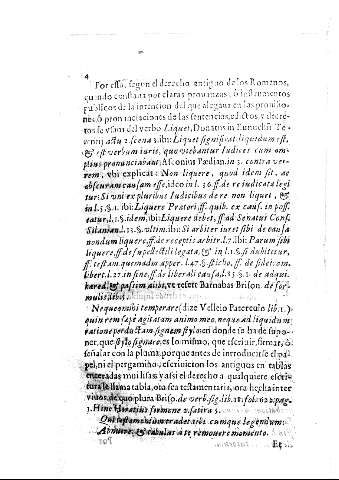 4
Por esso, segun el derecho antiguo de los Romanos,
quando constaua por claras prouanças, ò instrumentos
publicos de la intencion del que alegaua en las promissio-
nes, ò pronunciaciones de las sentencias, edictos, y decre-
tos se vsaua del verbo Liquet, Donatus in Eunuchū Te-
rentij actu 2. scena 3. ibi: Liquet significat liquidum est,
& est verbum iuris, quo vtebantur Iudices cum am-
plius pronunciabant, Asconius Pædian. in 3. contra ver-
rem, vbi explicat: Non liquere, quod idem sit, ac
obscuram causam esse, ideo in l. 36. ff. de re iudicata legi
tur: Si vni ex pluribus Iudicibus de re non liquet, & in
l. 15. §. 1. ibi: Liquere Prætori, ff. quib. ex caus. in poss.
eatur, l. 1. §. idem, ibi: Liquere debet, ff. ad Senatus Cons.
Silanian. l. 13. §. vltim. ibi: Si arbiter iuret sibi de causa
nondum liquere, ff. de receptis arbitr. l. 7. ibi: Parum sibi
liquere, ff. de supellectili legata, & in l. 1. §. si dubitetur,
ff. testam. quemadm. aper. l. 47. §. sticho, ff. de fidei com.
libert. l. 27. in fine, ff. de liberali causa, l. 23. §. 2. de adqui.
hæred. & passim alibi, vt refert Barnabas Brison. de for-
mulis
Neque enim temperare (dize Velleio Paterculo lib. 1.)
quin rem sæpe agitatam animo meo, neque ad liquidum
ratione perductam signem stylo: en donde se ha de supo-
ner, que stylo signare, es lo mismo, que escriuir, firmar, ò
señalar con la pluma, porque antes de introducirse el pa-
pel, ni el pergamino, escriuieron los antiguos en tablas
enceradas sus lisas, y assi el derecho a qualquiera escri-
tura se llama tabla, ora sea testamentaria, ora hecha inter
viuos, de que plura Briso. de verb. sig. lib. 18. fol. 602. pag.
3. Hinc Horatius sermone 2. satira 5.
Qui testamentum tradet tibi cumque legendum:
Abnuere, & tabulas à te remouere memento.
Et